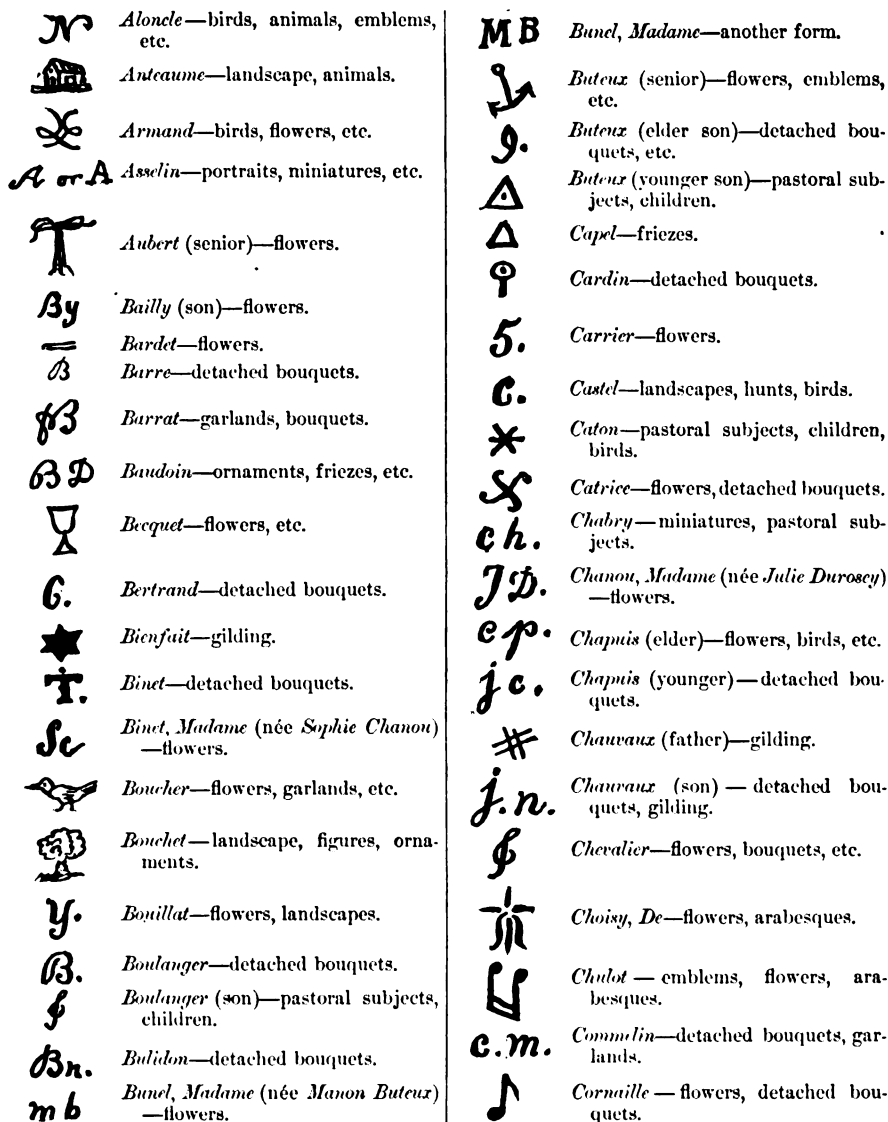 N Aloncle—birds, animals, emblems,
etc.
Anteaume—landscape, animals.
Armand—birds, flowers, etc.
A or A Asselin—portraits, miniatures, etc.
Aubert (senior)—flowers.
By Bailly (son)—flowers.
Bardet—flowers.
B Barre—detached bouquets.
B Barrat—garlands, bouquets.
B D Baudoin—ornaments, friezes, etc.
Becquet—flowers, etc.
6. Bertrand—detached bouquets.
Bienfait—gilding.
T. Binet—detached bouquets.
Sc Binet, Madame (née Sophie Chanou)
—flowers.
Boucher—flowers, garlands, etc.
Bouchet—landscape, figures, orna-
ments.
Y. Bouillat—flowers, landscapes.
B. Boulanger—detached bouquets.
Boulanger (son)—pastoral subjects,
children.
Bn. Bulidon—detached bouquets.
m b Bunel, Madame (née Manon Buteux)
—flowers.
M B Bunel, Madame—another form.
Buteux (senior)—flowers, emblems,
etc.
9. Buteux (elder son)—detached bou-
quets, etc.
Buteux (younger son)—pastoral sub-
jects, children.
Capel—friezes.
Cardin—detached bouquets.
5. Carrier—flowers.
c. Castel—landscapes, hunts, birds.
Caton—pastoral subjects, children,
birds.
Catrice—flowers, detached bouquets.
ch. Chabry—miniatures, pastoral sub-
jects.
J D. Chanou, Madame (née Julie Durosey)
—flowers.
c p. Chapuis (elder)—flowers, birds, etc.
j c. Chapuis (younger)—detached bou-
quets.
Chauvaux (father)—gilding.
j. n. Chauvaux (son) — detached bou-
quets, gilding.
Chevalier—flowers, bouquets, etc.
Choisy, De—flowers, arabesques.
Chulot — emblems, flowers, ara-
besques.
c. m. Commelin—detached bouquets, gar-
lands.
Cornaille — flowers, detached bou-
quets.